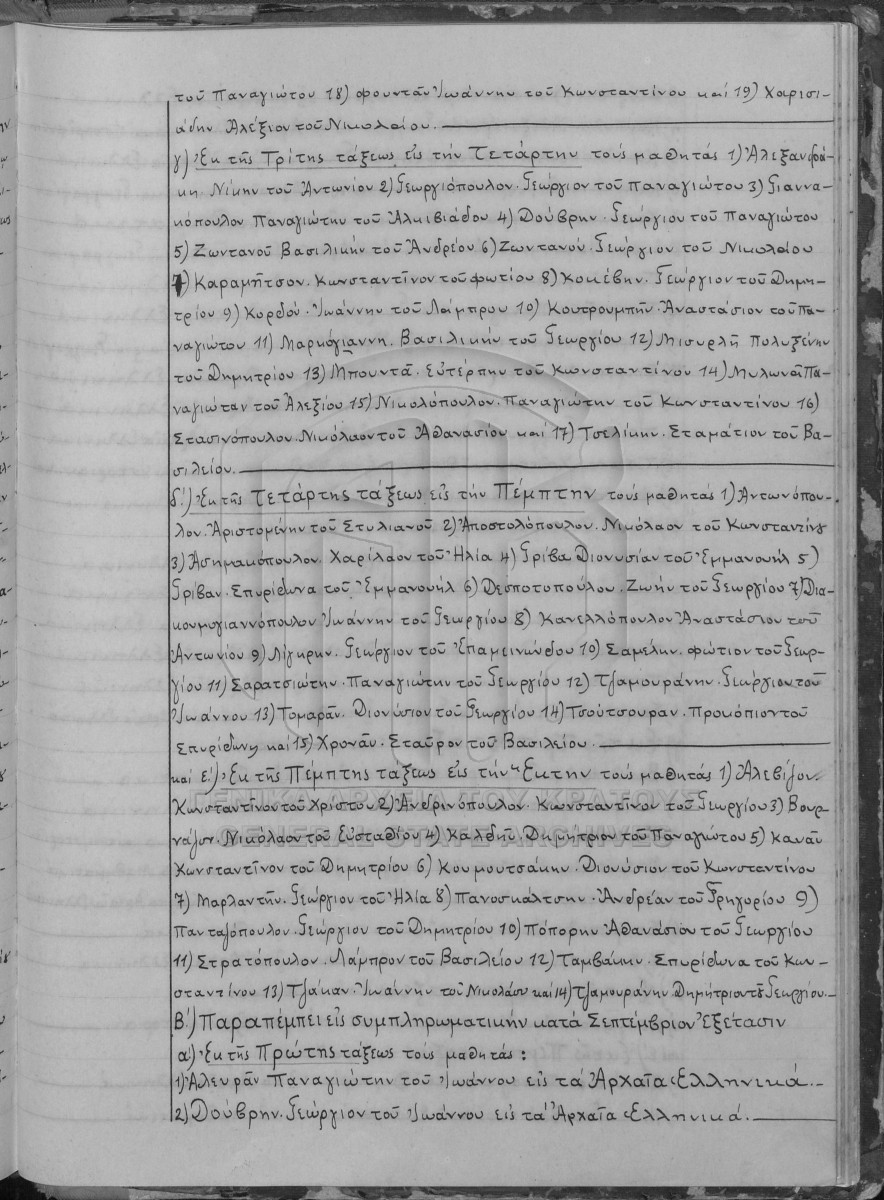 τοῦ Παναγιώτου 18) Φουντᾶν Ἰωάννην τοῦ Κωνσταντίνου καί 19) Χαρισι-
άδην Ἀλέξιον τοῦ Νικολάου.
γ) Ἐκ τῆς Τρίτης τάξεως εἰς τήν Τετάρτην τούς μαθητάς 1) Ἀλεξανδρά-
κη Νίκην τοῦ Ἀντωνίου 2) Γεωργιόπουλον. Γεώργιον τοῦ Παναγιώτου 3) Γιαννα-
κόπουλον Παναγιώτην τοῦ Ἀλκιβιάδου 4) Δούβρην. Γεώργιον τοῦ Παναγιώτου
5) Ζωντανοῦ Βασιλικήν τοῦ Ἀνδρέου 6) Ζωντανόν. Γεώργιον τοῦ Νικολάου
7) Καραμῆτσον. Κωνσταντῖνον τοῦ Φωτίου 8) Κοκέβην. Γεώργιον τοῦ Δημη-
τρίου 9) Κορδόν. Ἰωάννην τοῦ Λάμπρου 10) Κουτρουμπῆν. Ἀναστάσιον τοῦ Πα-
ναγιώτου 11) Μαρκόγιαννη. Βασιλικήν τοῦ Γεωργίου 12) Μισυρλῆ Πολυξένην
τοῦ Δημητρίου 13) Μπουντᾶ. Εὐτέρπην τοῦ Κωνσταντίνου 14) Μυλωνᾶ Πα-
ναγιώταν τοῦ Ἀλεξίου 15) Νικολόπουλον. Παναγιώτην τοῦ Κωνσταντίνου 16)
Στασινόπουλον. Νικόλαον τοῦ Ἀθανασίου καί 17) Τσελίκην. Σταμάτιον τοῦ Βα-
σιλείου.
δ΄) Ἐκ τῆς Τετάρτης τάξεως εἰς τήν Πέμπτην τούς μαθητάς 1) Ἀντωνόπου-
λον. Ἀριστομένην τοῦ Στυλιανοῦ 2) Ἀποστολόπουλον. Νικόλαον τοῦ Κωνσταντίνου
3) Ἀσημακόπουλον. Χαρίλαον τοῦ Ἠλία 4) Γρίβα Διονυσίαν τοῦ Ἐμμανουήλ 5)
Γρίβαν. Σπυρίδωνα τοῦ Ἐμμανουήλ 6) Δεσποτοπούλου. Ζωήν τοῦ Γεωργίου 7) Δια-
κουμογιαννόπουλον Ἰωάννην τοῦ Γεωργίου 8) Κανελλόπουλον Ἀναστάσιον τοῦ
Ἀντωνίου 9) Λίγκρην. Γεώργιον τοῦ Ἐπαμεινώνδου 10) Σαμέλην. Φώτιον τοῦ Γεωρ-
γίου 11) Σαρατσιώτην. Παναγιώτην τοῦ Γεωργίου 12) Τζαμουράνην. Γεώργιον τοῦ
Ἰωάννου 13) Τομαρᾶν. Διονύσιον τοῦ Γεωργίου 14) Τσούτσουραν. Προκόπιον τοῦ
Σπυρίδωνος καί 15) Χρονᾶν. Σταῦρον τοῦ Βασιλείου.
καί ε΄) Ἐκ τῆς Πέμπτης τάξεως εἰς τήν Ἕκτην τούς μαθητάς 1) Ἀλεβίζον.
Κωνσταντῖνον τοῦ Χρίστου 2) Ἀνδρινόπουλον. Κωνσταντῖνον τοῦ Γεωργίου 3) Βουρ-
νάζον. Νικόλαον τοῦ Εὐσταθίου 4) Καλδῆν. Δημήτριον τοῦ Παναγιώτου 5) Κανᾶν
Κωνσταντῖνον τοῦ Δημητρίου 6) Κουμουτσάκην. Διονύσιον τοῦ Κωνσταντίνου
7) Μαρλαντῆν. Γεώργιον τοῦ Ἠλία 8) Πανοσκάλτσην. Ἀνδρέαν τοῦ Γρηγορίου 9)
Πανταζόπουλον. Γεώργιον τοῦ Δημητρίου 10) Πόπορην Ἀθανάσιον τοῦ Γεωργίου
11) Στρατόπουλον. Λάμπρον τοῦ Βασιλείου 12) Ταμβάκην. Σπυρίδωνα τοῦ Κων-
σταντίνου 13) Τζάκαν. Ἰωάννην τοῦ Νικολάου καί 14) Τζαμουράνην. Δημήτριον τοῦ Γεωργίου.
Β΄) Παραπέμπει εἰς συμπληρωματικήν κατά Σεπτέμβριον Ἐξέτασιν
α) Ἐκ τῆς Πρώτης τάξεως τούς μαθητάς:
1) Ἀλευρᾶν Παναγιώτην τοῦ Ἰωάννου εἰς τά Ἀρχαῖα Ἑλληνικά.
2) Δούβρην. Γεώργιον τοῦ Ἰωάννου εἰς τά Ἀρχαῖα Ἑλληνικά.
ΓΕΝΙΚΑ ΑΡΧΕΙΑ ΤΟΥ ΚΡΑΤΟΥΣ